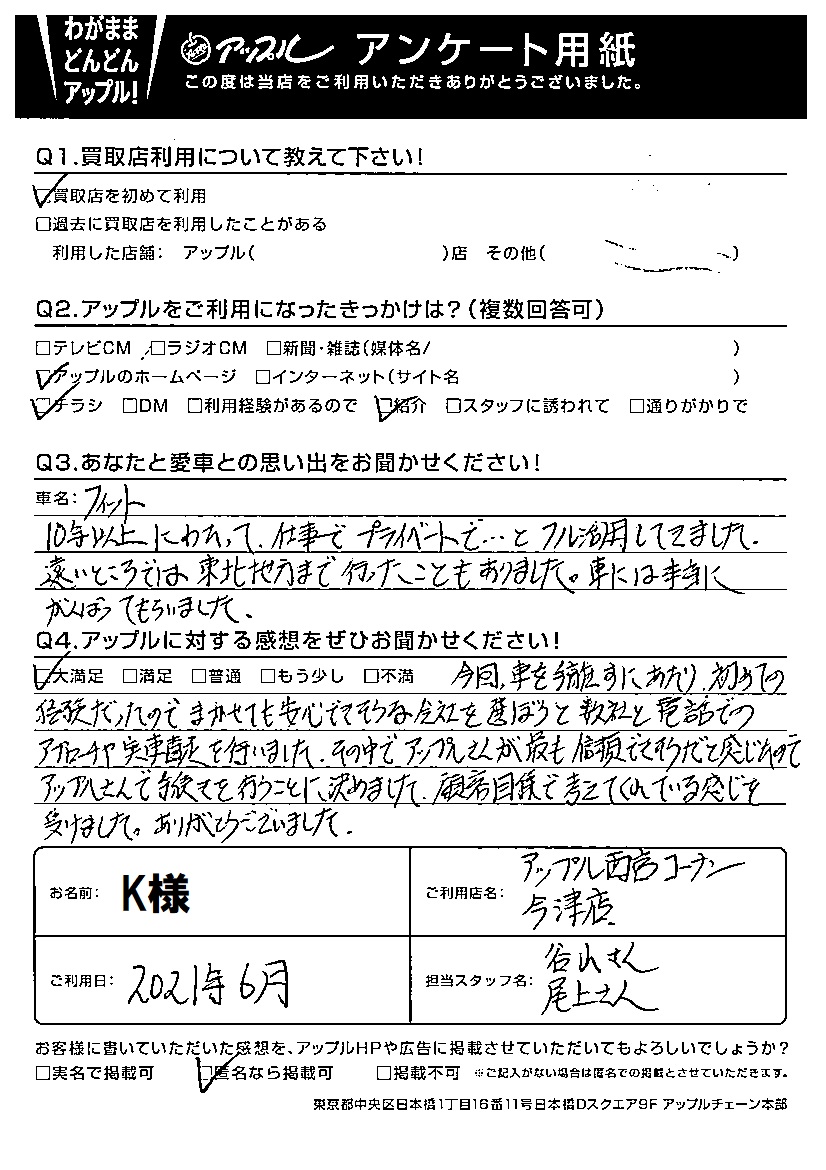 わがまま
どんどん
アップル!
アップル アンケート用紙
この度は当店をご利用いただきありがとうございました。
Q1.買取店利用について教えて下さい!
☑買取店を初めて利用
□過去に買取店を利用したことがある
利用した店舗: アップル( )店 その他( )
Q2.アップルをご利用になったきっかけは?(複数回答可)
□テレビCM □ラジオCM □新聞・雑誌(媒体名/ )
☑アップルのホームページ □インターネット(サイト名 )
☑チラシ □DM □利用経験があるので ☑紹介 □スタッフに誘われて □通りがかりで
Q3.あなたと愛車との思い出をお聞かせください!
車名:フィット
10年以上にわたって、仕事でプライベートで…とフル活用してきました。
遠いところでは東北地方まで行ったこともありました。車には本当に
がんばってもらいました。
Q4.アップルに対する感想をぜひお聞かせください!
☑大満足 □満足 □普通 □もう少し □不満 今回、車を手放すにあたり、初めての
経験だったので まかせても安心できそうな会社を選ぼうと数社と電話での
アプローチや実車査定を行いました。その中でアップルさんが最も信頼できそうだと感じたので
アップルさんで手続きを行うことに決めました。顧客目線で考えてくれている感じを
受けました。ありがとうございました。
お名前: K様
ご利用店名: アップル西宮コーナン
今津店
ご利用日: 2021年6月
担当スタッフ名: 谷山さん
尾上さん
お客様に書いていただいた感想を、アップルHPや広告に掲載させていただいてもよろしいでしょうか?
□実名で掲載可 ☑匿名なら掲載可 □掲載不可 ※ご記入がない場合は匿名での掲載とさせていただきます。
東京都中央区日本橋1丁目16番11号日本橋Dスクエア9F アップルチェーン本部